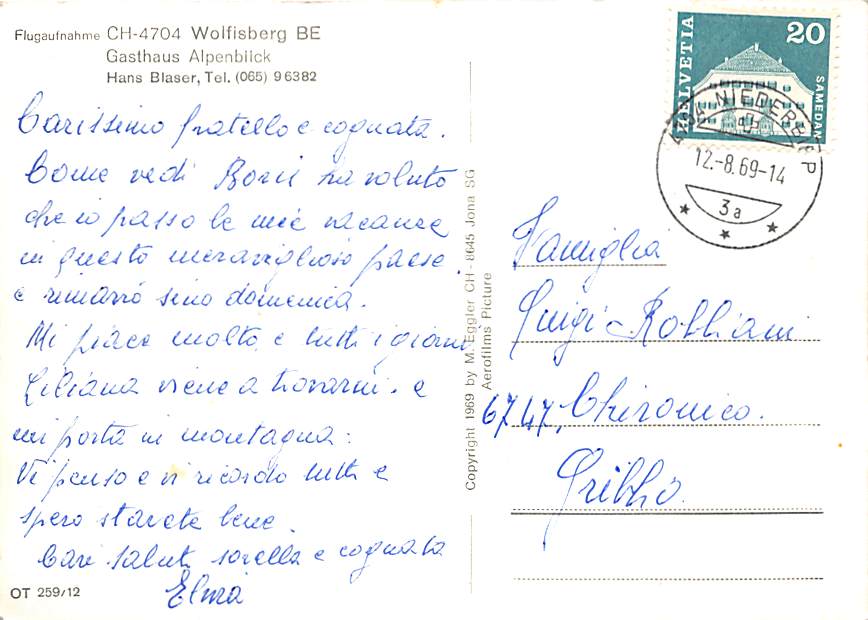 Flugaufnahme CH-4704 Wolfisberg BE
Gasthaus Alpenblick
Hans Blaser, Tel. (065) 9 63 82
Carissimo fratello e cognata.
Come vedi Boris ha voluto
che io passo le mie vacanze
in questo meraviglioso paese.
e rimarrò sino domenica.
Mi piace molto e tutti i giorni
Liliana viene a trovarmi. e
mi porta in montagna.
Vi penso e vi ricordo tutti e
spero starete bene.
Cari saluti sorella e cognata
OT 259/12
Copyright 1969 by M. Eggler CH - 8645 Jona SG
Aerofilms Picture
HELVETIA
20
SAMEDAN
4704 NIEDERBIPP
12.-8.69-14
3a
Famiglia
Luigi Robbiani
6747, Chironico.
Gribbio.